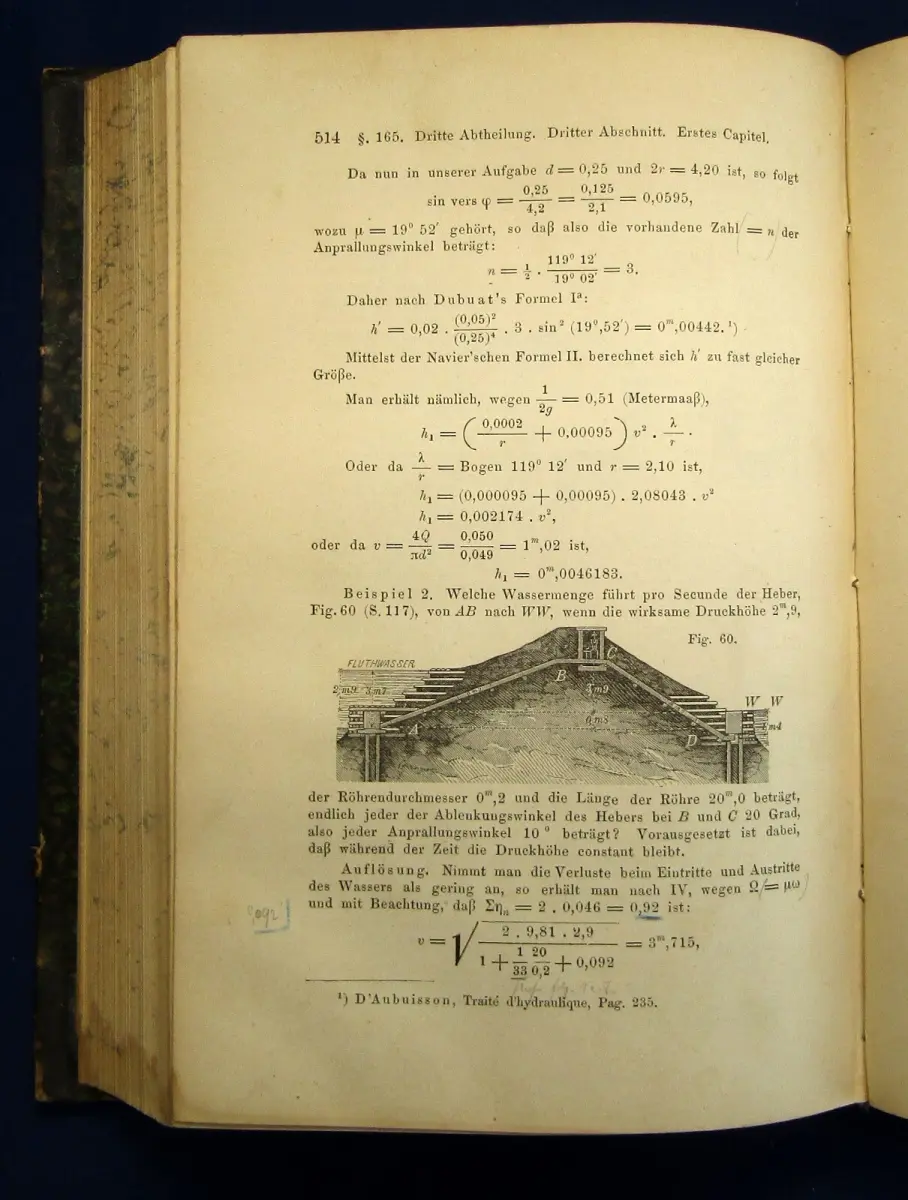 514 §. 165. Dritte Abtheilung. Dritter Abschnitt. Erstes Capitel.
Da nun in unserer Aufgabe d = 0,25 und 2r = 4,20 ist, so folgt
sin vers φ = 0,25/4,2 = 0,125/2,1 = 0,0595,
wozu μ = 19° 52′ gehört, so daß also die vorhandene Zahl = n der
Anprallungswinkel beträgt:
n = ½ . 119° 12′/19° 02′ = 3.
Daher nach Dubuat's Formel Iª:
h′ = 0,02 . (0,05)²/(0,25)⁴ . 3 . sin² (19°,52′) = 0ᵐ,00442. ¹)
Mittelst der Navier'schen Formel II. berechnet sich h′ zu fast gleicher
Größe.
Man erhält nämlich, wegen 1/2g = 0,51 (Metermaaß),
h₁ = (0,0002/r + 0,00095) v² . λ/r .
Oder da λ/r = Bogen 119° 12′ und r = 2,10 ist,
h₁ = (0,000095 + 0,00095) . 2,08043 . v²
h₁ = 0,002174 . v²,
oder da v = 4Q/πd² = 0,050/0,049 = 1ᵐ,02 ist,
h₁ = 0ᵐ,0046183.
Beispiel 2. Welche Wassermenge führt pro Secunde der Heber,
Fig. 60 (S. 117), von AB nach WW, wenn die wirksame Druckhöhe 2ᵐ,9,
Fig. 60.
FLUTHWASSER
C
B
2,m9 3,m7
3,m9
W W
0,m8
A
D
1,m4
der Röhrendurchmesser 0ᵐ,2 und die Länge der Röhre 20ᵐ,0 beträgt,
endlich jeder der Ablenkungswinkel des Hebers bei B und C 20 Grad,
also jeder Anprallungswinkel 10 ° beträgt? Vorausgesetzt ist dabei,
daß während der Zeit die Druckhöhe constant bleibt.
Auflösung. Nimmt man die Verluste beim Eintritte und Austritte
des Wassers als gering an, so erhält man nach IV, wegen Ω = μω
und mit Beachtung, daß Σηₙ = 2 . 0,046 = 0,92 ist:
v = √(2 . 9,81 . 2,9 / (1 + 1/33 20/0,2 + 0,092)) = 3ᵐ,715,
¹) D'Aubuisson, Traité d'hydraulique, Pag. 235.